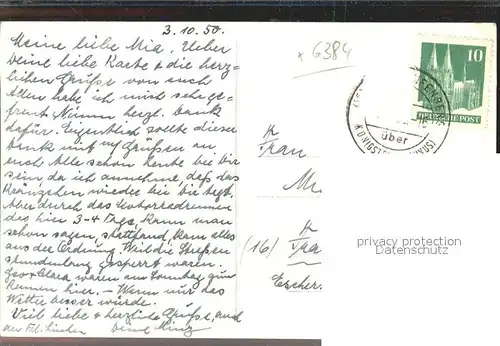 3.10.50.
Meine liebe Mia, Ueber
Deine liebe Karte & die herz-
lichen Grüße von euch
Allen habe ich mich sehr ge-
freut Nimm herzl. Dank
dafür. Eigentlich sollte dieser
Dank mit Grüßen an
euch Alle schon heute bei Dir
sein, da ich annehme, daß das
Kränzchen wieder bei Dir tagt.
Aber durch das Motorradrennen
das hier 3-4 Tage, kann man
schon sagen, stattfand, kam alles
aus der Ordnung. Weil die Straßen
stundenlang gesperrt waren.
Geo & Clara waren am Sonntag zum
Rennen hier. - Wenn nur das
Wetter besser würde.
Viel liebe & herzliche Grüße, auch
an Frl. Linden Deine
x 6384
10
DEUTSCHE POST
über
KÖNIGSTEIN (TAUNUS)
Frau
(16)
Escher
privacy protection
watermark